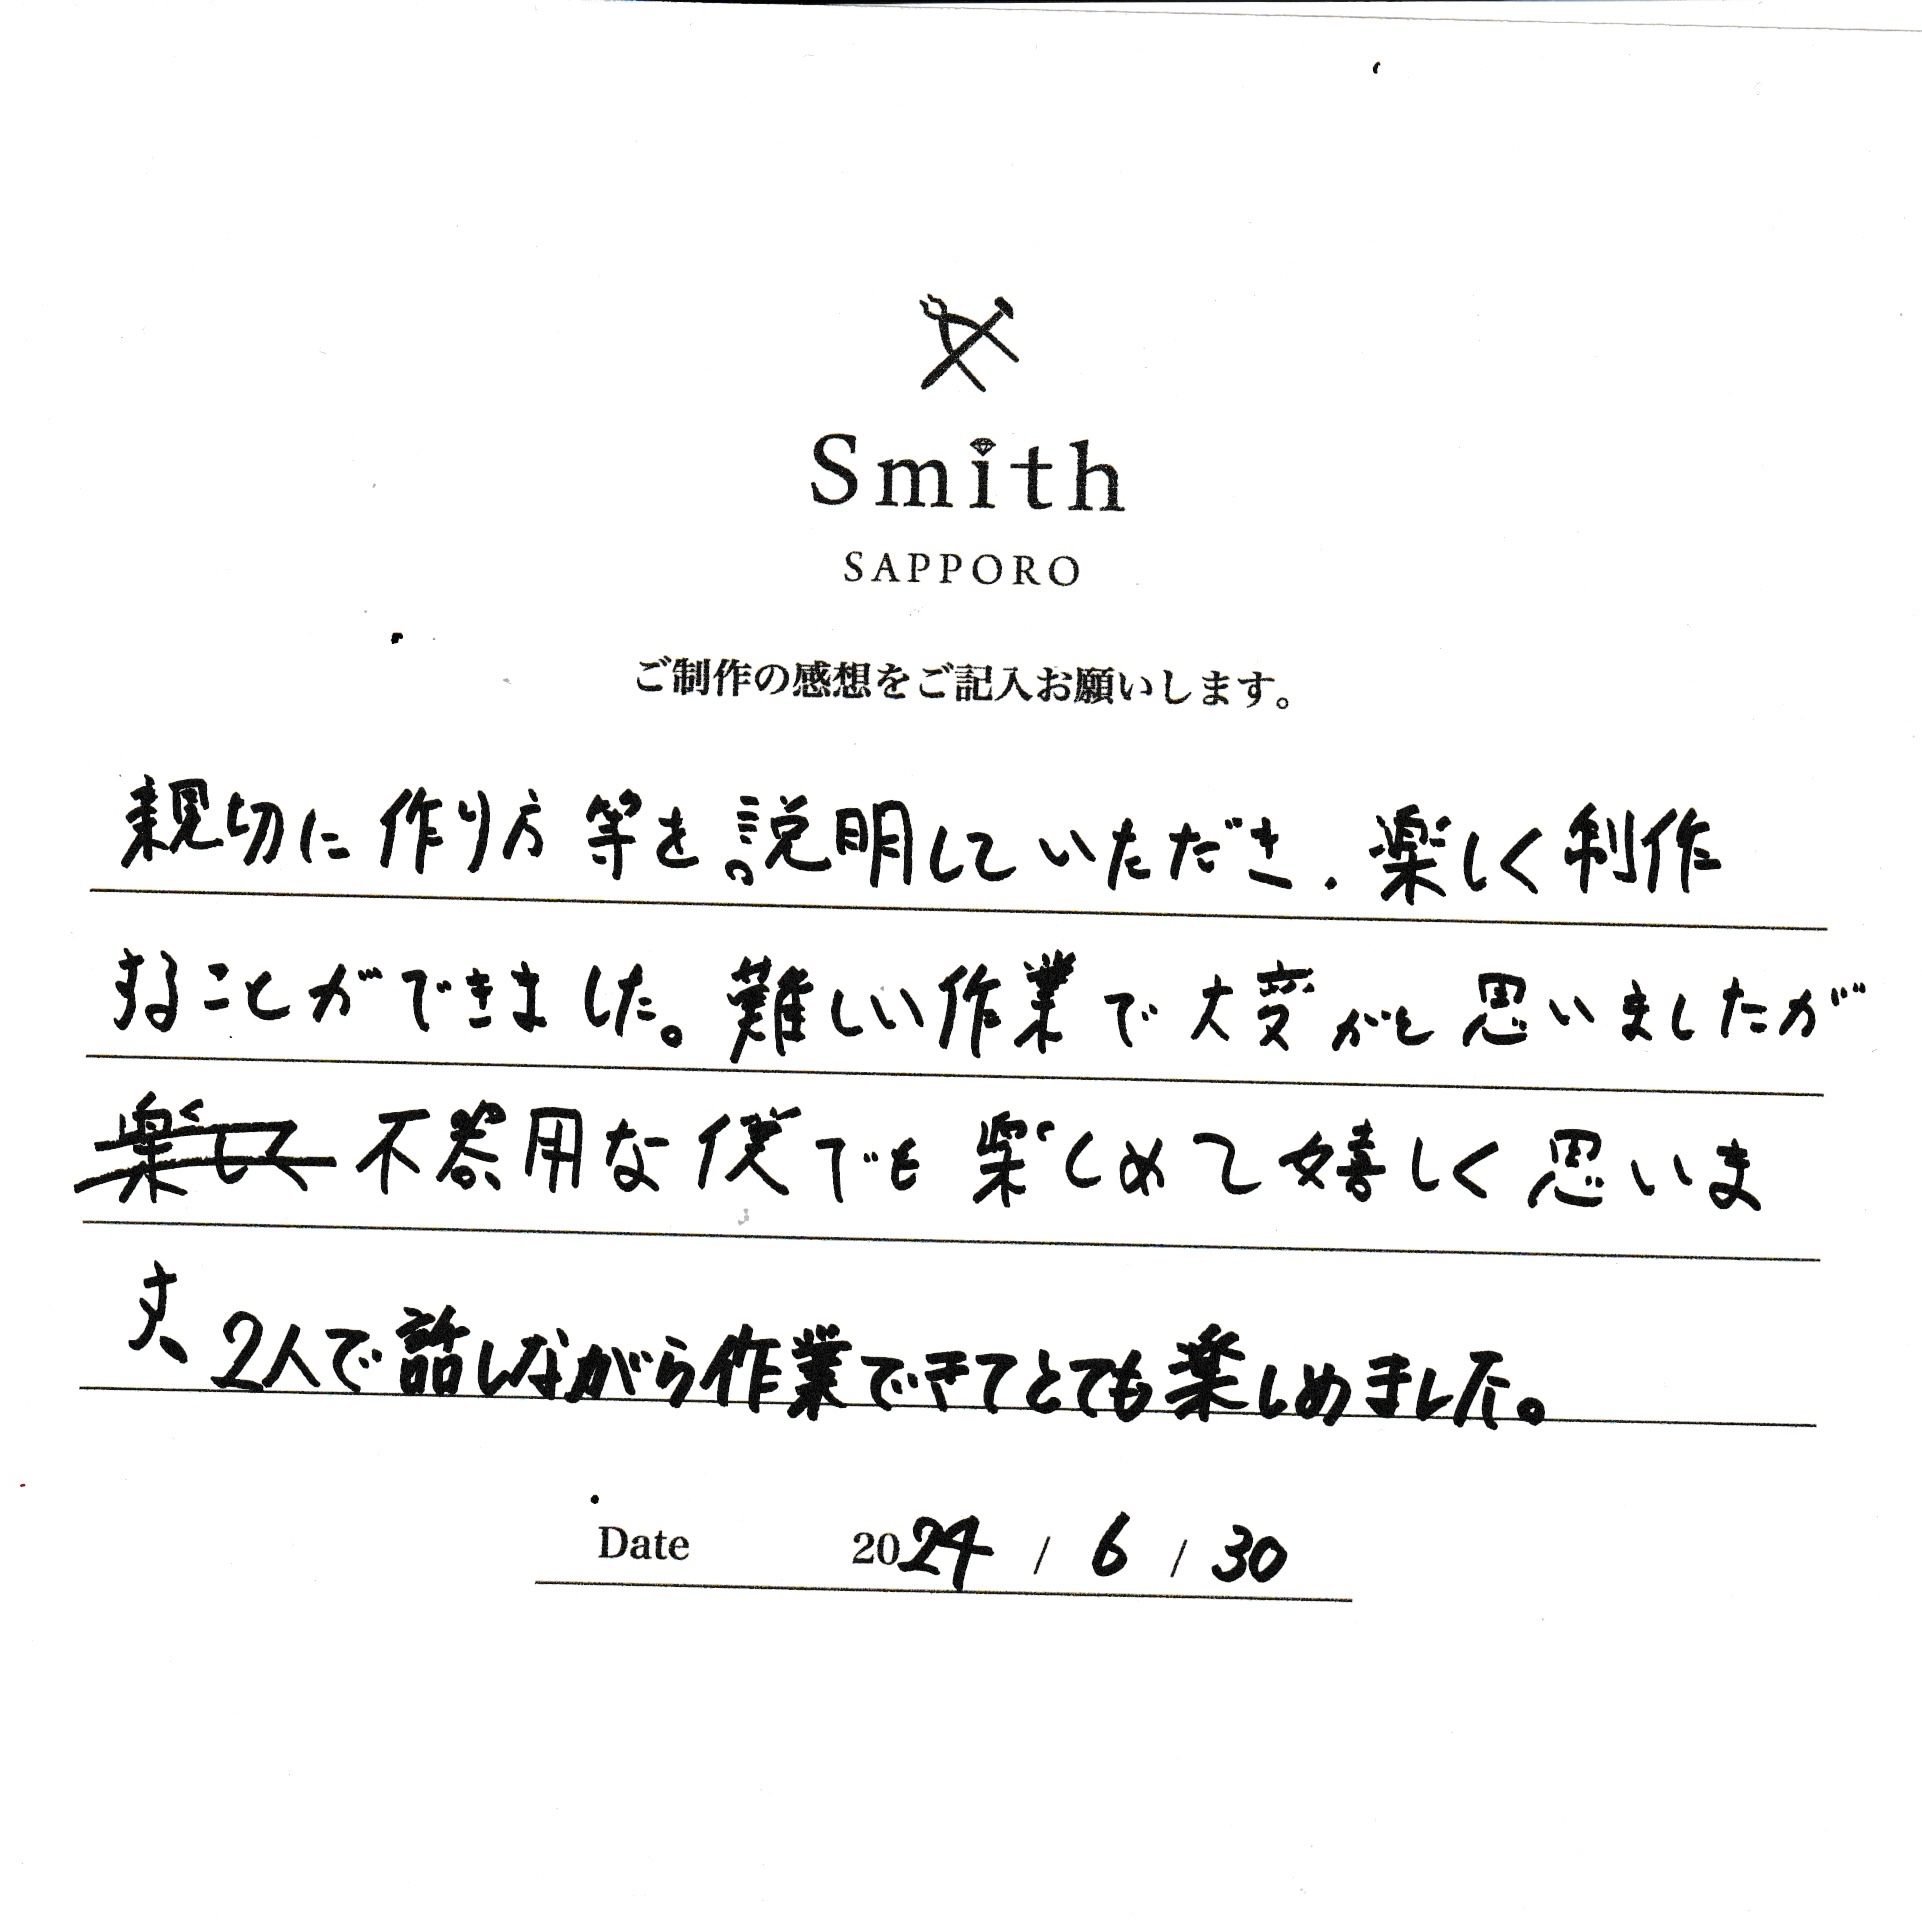 Smith
SAPPORO
ご制作の感想をご記入お願いします。
親切に作り方等を説明していただき、楽しく制作
することができました。難しい作業で大変かと思いましたが
楽しく 不器用な僕でも楽しめて嬉しく思いま
す、2人で話しながら作業できてとても楽しめました。
Date 2024 / 6 / 30